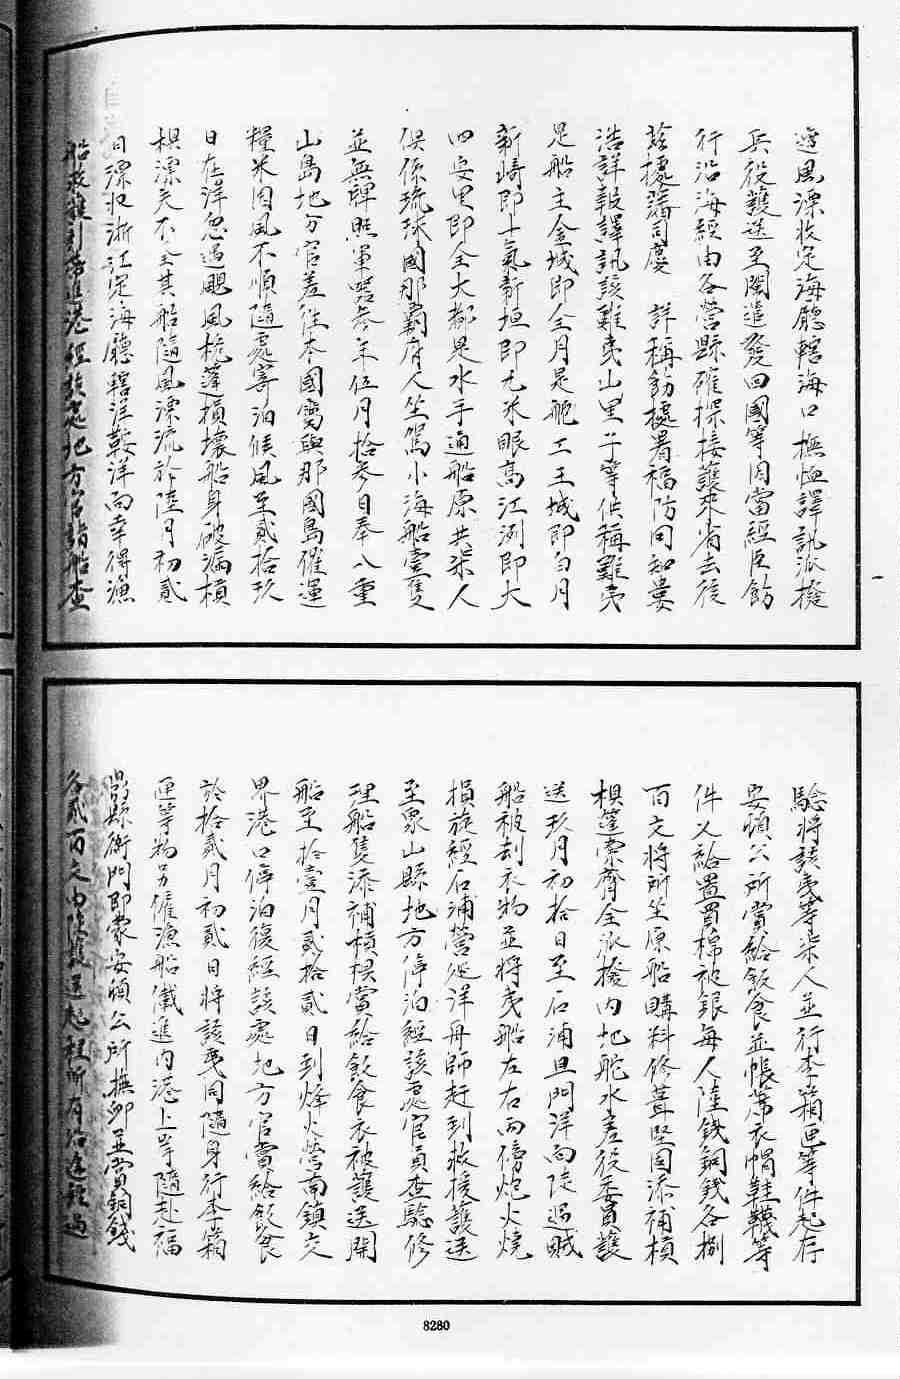 遭風漂收定海廳轄海口撫恤譯訊派撥
兵役護送至閩遣發回國等因當經臣飭
行沿海經由各營縣確探接護來省去後
茲據藩司慶　詳稱飭據署福防同知婁
浩詳報譯訊該難夷山里子等供稱難夷
是船主金城即全月是舵工玉城即白月
新崎即士氣新垣即尤米眼高江洌即大
四安里即全大都是水手通船原共柒人
俱係琉球國那霸府人坐駕小海船壹隻
並無牌照軍器叁年伍月拾叁日奉八重
山島地方官差往本國寓與那國島催運
糧米因風不順隨處寄泊候風至貳拾玖
日在洋忽遇颶風桅篷損壞船身破漏槓
椇漂失不全其船隨風漂流於陸月初貳
日漂收浙江定海廳轄洋鞍洋面幸得漁
船救護引帶進港經該處地方官詣船查
驗將該夷等柒人並行李箱包等件起存
安頓公所賞給飯食並帳蓆衣帽鞋韈等
件又給置買棉被銀每人陸錢銅錢各捌
百文將所坐原船購料修葺堅固添補槓
椇篷索齊全派撥內地舵水差役委員護
送玖月初拾日至石浦旦門洋面陡遇賊
船被刦衣物並將夷船左右兩傍炮火燒
損旋經石浦營巡洋舟師赶到救援護送
至象山縣地方停泊經該處官員查驗修
理船隻添補槓椇賞給飲食衣被護送開
船至拾壹月貳拾貳日到烽火營南鎮交
界港口停泊復經該處地方官賞給飯食
於拾貳月初貳日將該夷同隨身行李箱
匣等物另僱漁船儎進內港上岸隨赴福
鼎縣衙門即蒙安頓公所撫卹並賞銅錢
各貳百文由陸護送起程所有沿途經過
8280